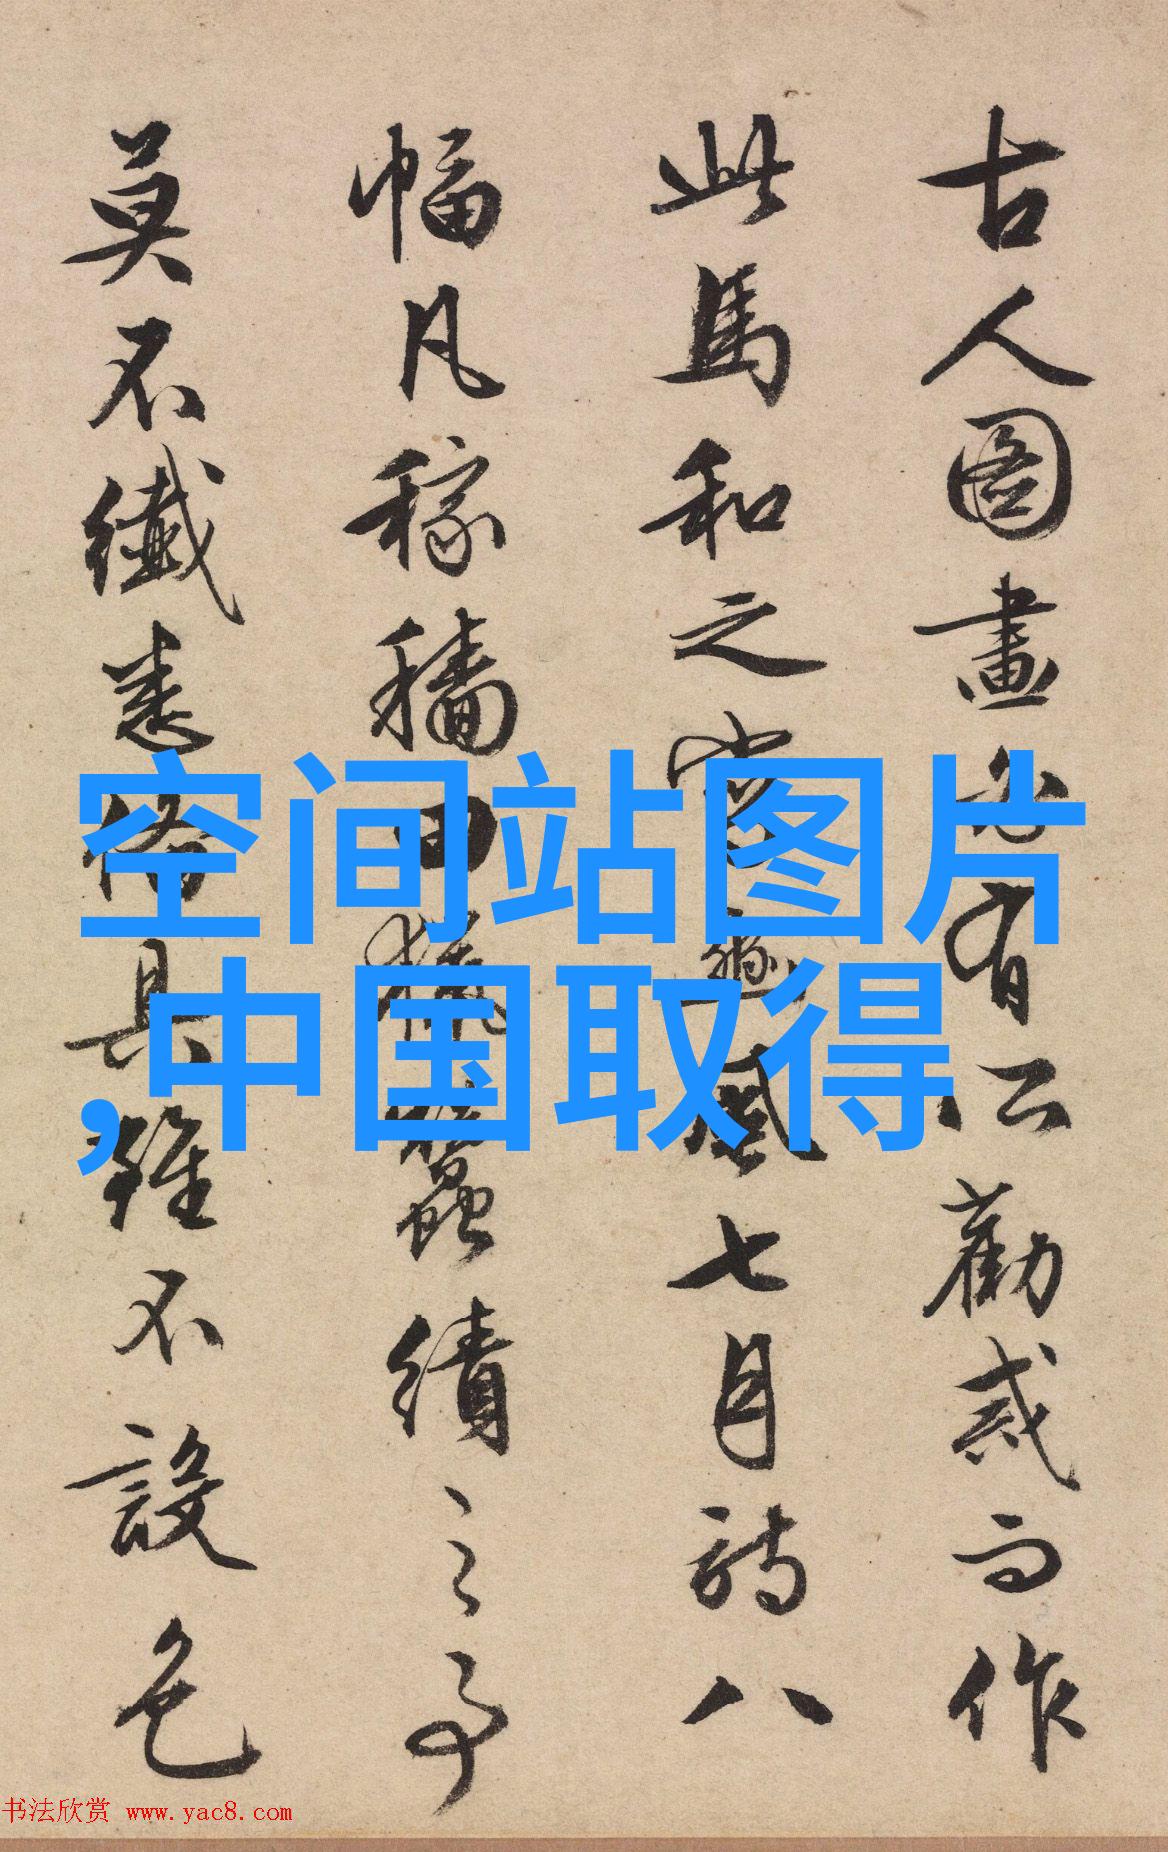 古人图畫必有所勸戒而作
此馬和之當遜感七月詩八
幅凡稼穡田獵蠶績之事
莫不纖悉備具雖不設色
空间站图片
,中国取得
书法欣赏 www.yac8.com